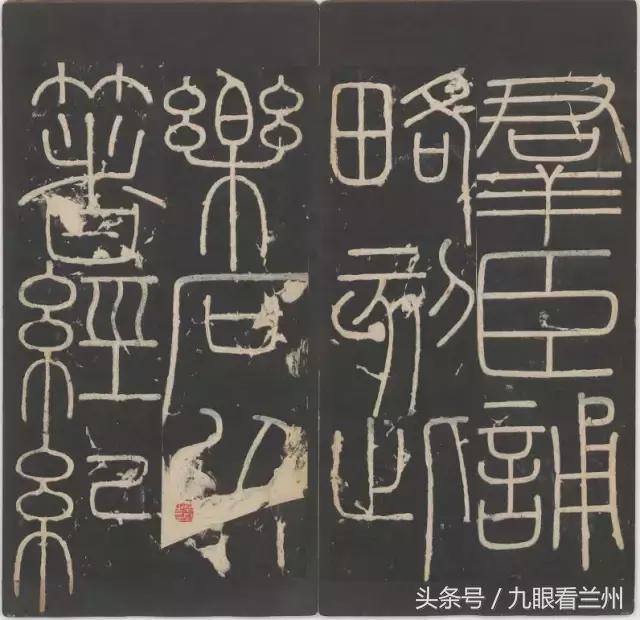 羣臣誦
略刻此
樂石以
箸經紀
头条号 / 九眼看兰州